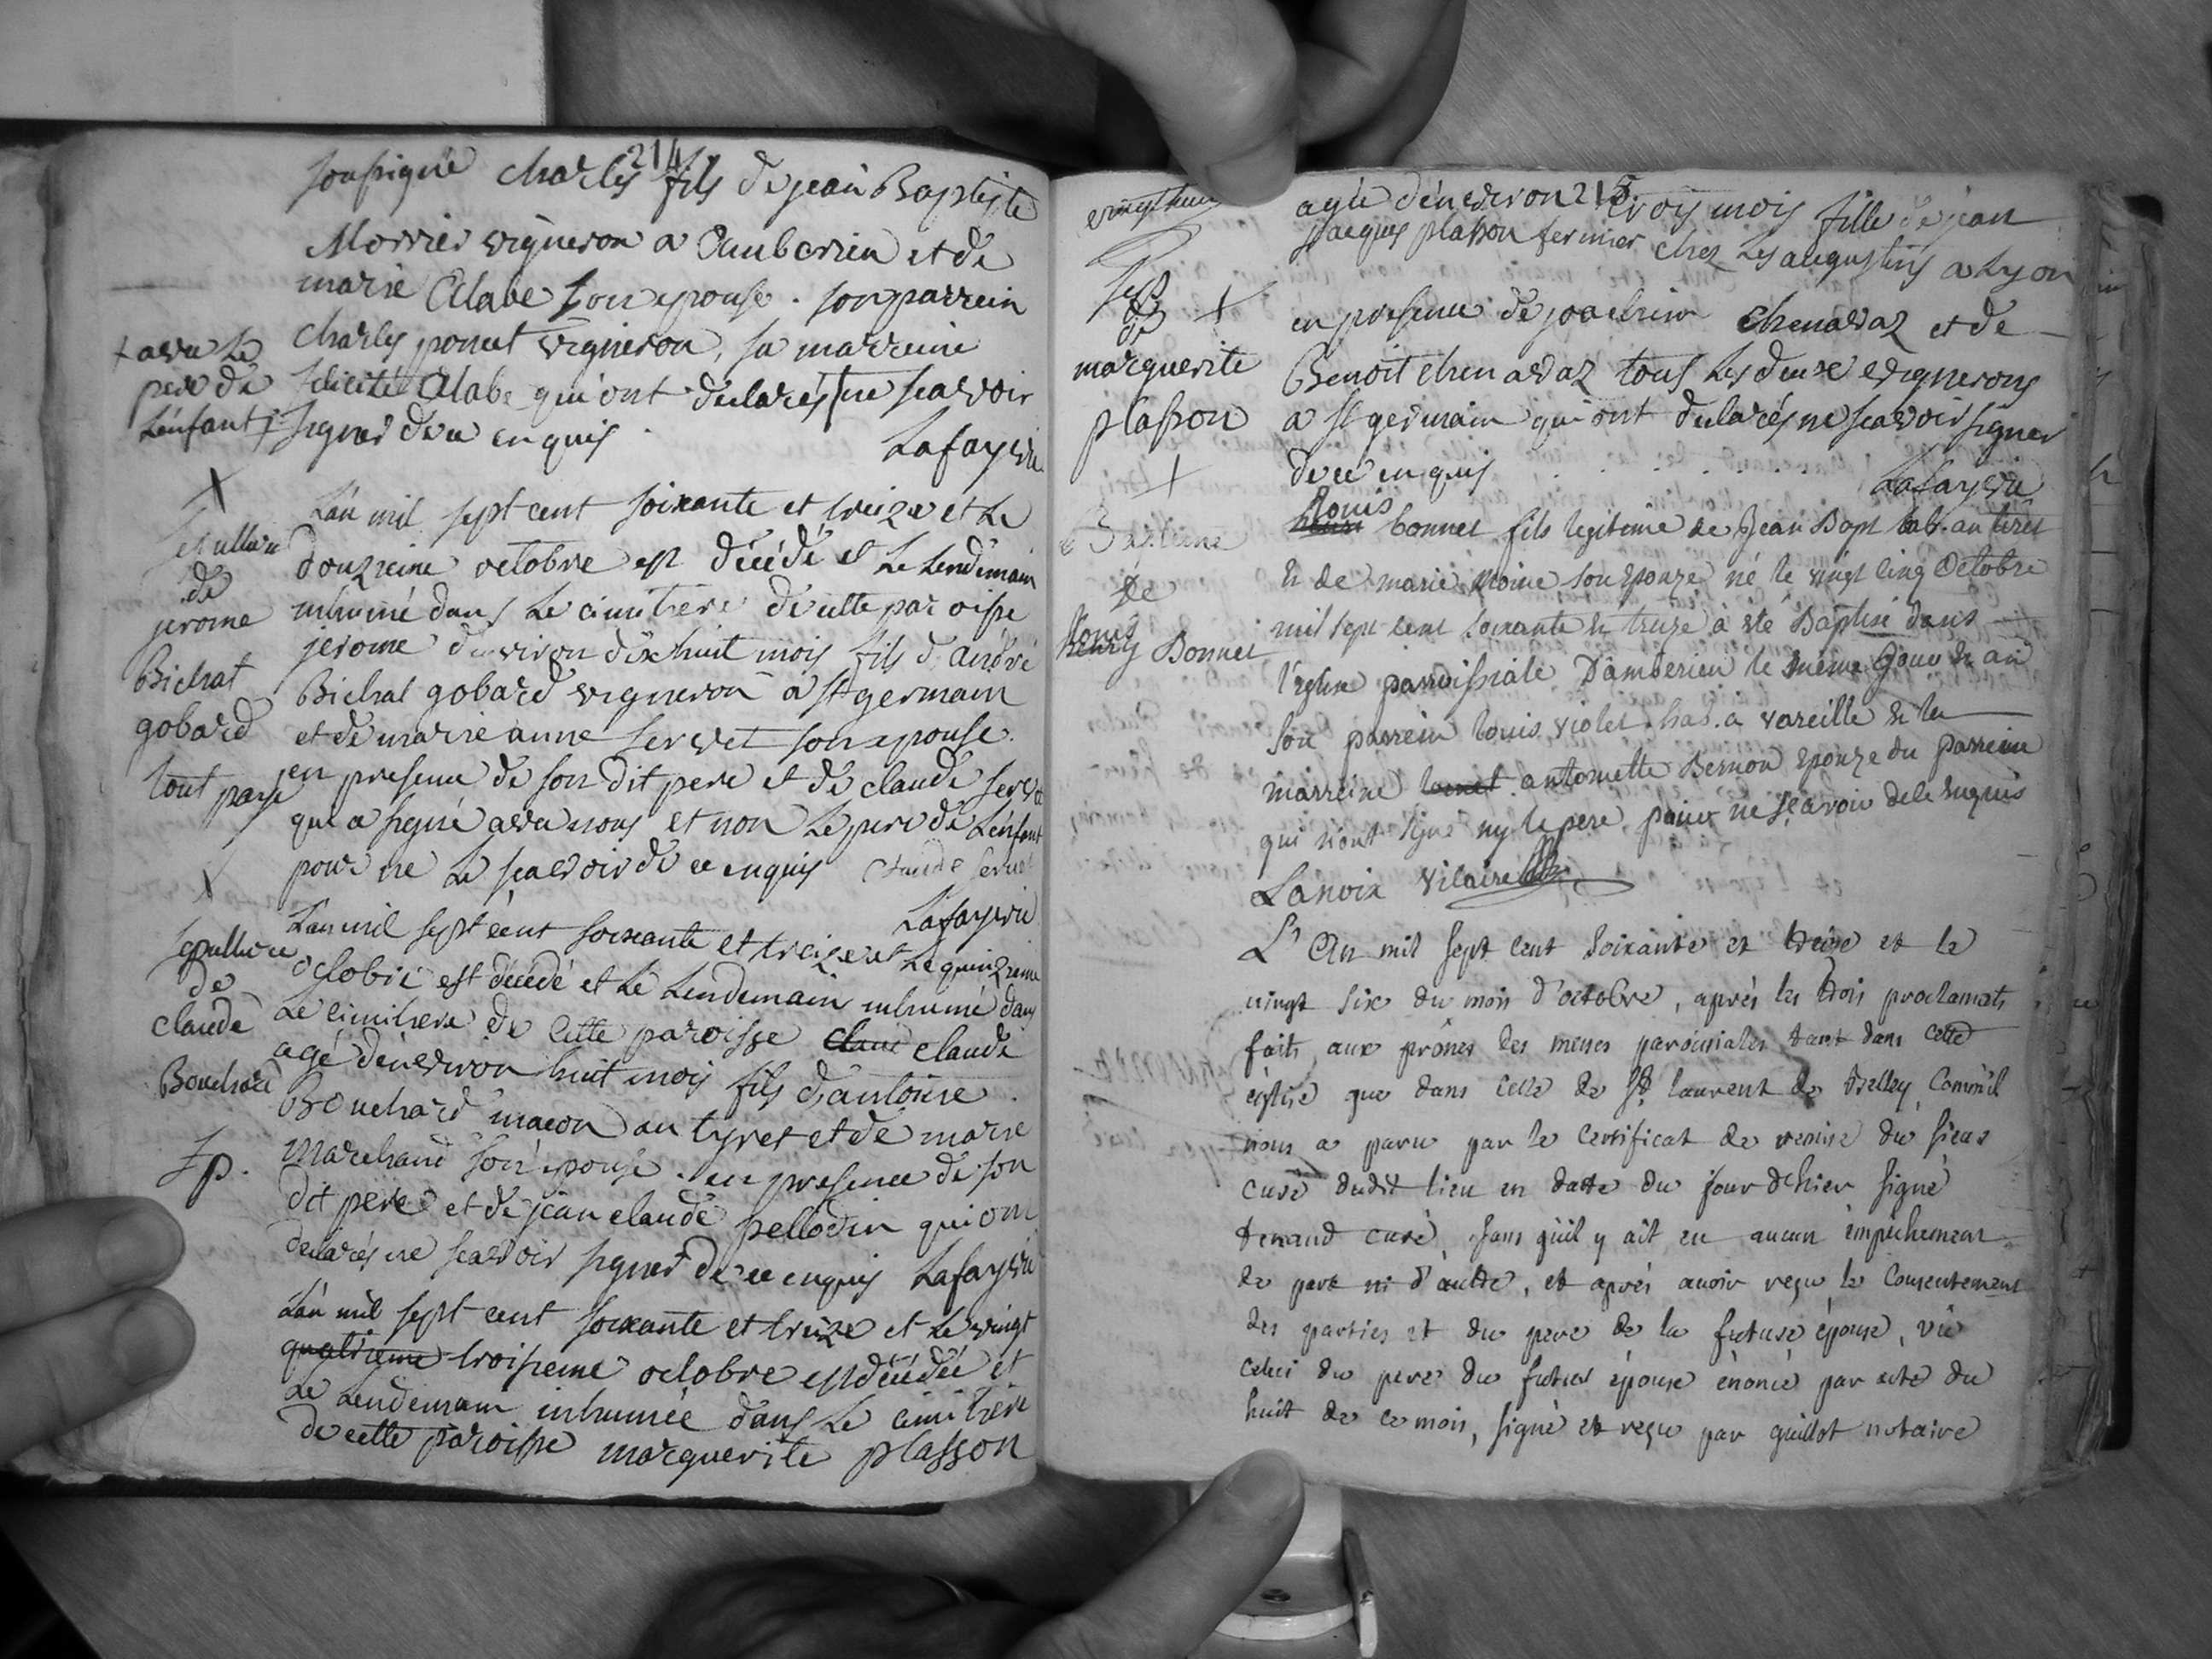 214
soussigné charles fils de jean Baptiste
Morrier vigneron a Cambérieu et de
marie Alabe son epouse. son parrein
charles poncet vigneron, sa marreine
felicité Alabe qui ont declarés ne scavoir
signer de ce enquis.
Lafayvre
+ avec le
pere de
L'enfant
L'an mil sept cent soixante et treize et Le
douzieme octobre est décédé et Le Lendemain
inhumé dans Le cimitiere de cette paroisse
jerome d'environ dix huit mois fils d'andré
Bichat gobard vigneron a st germain
et de marie anne servet son epouse.
en presence de son dit pere et de claude servet
qui a signé avec nous et non Le pere de L'enfant
pour ne Le scavoir de ce enquis Claude Servet
Lafayvre
sepulture
de
jerome
Bichat
gobard
tout payé
L'an mil sept cent soixante et treize et Le quinzieme
octobre est décédé et Le Lendemain inhumé dans
Le cimitiere de cette paroisse claud claude
agé d'environ huit mois fils d'antoine
Bouchard macon au tyret et de marie
marchand son epouse. en presence de son
dit pere et de jean claude pellodin qui ont
declarés ne scavoir signer de ce enquis Lafayvre
sepulture
de
claude
Bouchard
L'an mil sept cent soixante et treize et Le vingt
quatrieme troisieme octobre est décédée et
Le Lendemain inhumée dans Le cimitiere
de cette paroisse marguerite plasson
215
agée d'environ trois mois fille de jean
jacques plasson fermier chez Les augustins a Lyon
en presence de joachim chenavaz et de
Benoit chenavaz tous Les deux vignerons
a st germain qui ont declarés ne scavoir signer
de ce enquis
Lafayvre
de
marguerite
plasson
louis
henri bonnet fils legitime de Jean Bapt lab. au tiret
et de marie moine son epouze né le vingt cinq Octobre
mil sept cent soixante et treize à eté Baptisé dans
l'eglise parroissiale D'amberieu le meme jour et an
son parrein louis violet hab. a vareille et la
marreine antoinette Bernon epouze du parrein
qui n'ont signé ny le pere pour ne sçavoir de le enquis
Lanoix Vilaire
de
louis
henry Bonnet
L'An mil sept cent soixante et treize et le
vingt six du mois d'octobre, aprés les trois proclamats
faits aux prônes des messes paroissiales tant dans cette
église que dans celle de st laurent de trelley, Comm'il
nous a paru par le Certificat de remise du sieur
curé dudit lieu en datte du jour d'hier signé
tenand curé, sans qu'il y ait eu aucun empéchement
de part ni d'autre, et aprés avoir reçu le Consentement
des parties et du pere de la future épouse, vû
celui du pere du futur épouse énoncé par acte du
huit de ce mois, signé et reçu par guillot notaire